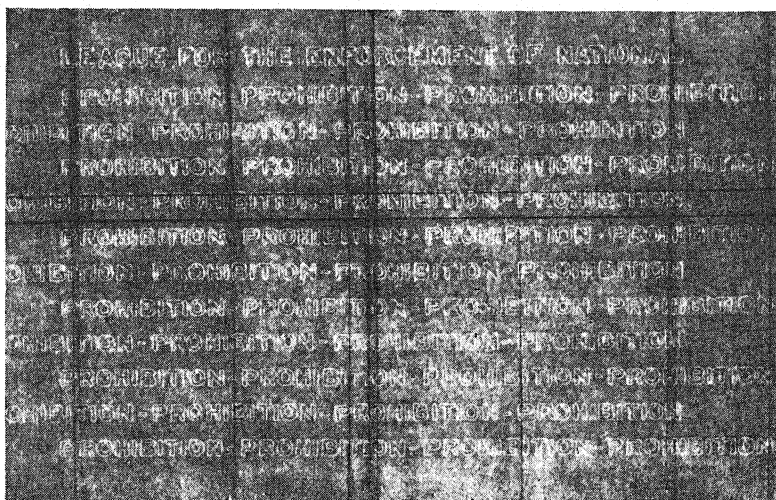 LEAGUE FOR THE ENFORCEMENT OF NATIONAL
PROHIBITION-PROHIBITION-PROHIBITION-PROHIBITION
OHIBITION-PROHIBITION-PROHIBITION-PROHIBITION
PROHIBITION-PROHIBITION-PROHIBITION-PROHIBITION
OHIBITION-PROHIBITION-PROHIBITION-PROHIBITION
PROHIBITION-PROHIBITION-PROHIBITION-PROHIBITION
OHIBITION-PROHIBITION-PROHIBITION-PROHIBITION
PROHIBITION-PROHIBITION-PROHIBITION-PROHIBITION
OHIBITION-PROHIBITION-PROHIBITION-PROHIBITION
PROHIBITION-PROHIBITION-PROHIBITION-PROHIBITION
OHIBITION-PROHIBITION-PROHIBITION-PROHIBITION
PROHIBITION-PROHIBITION-PROHIBITION-PROHIBITION